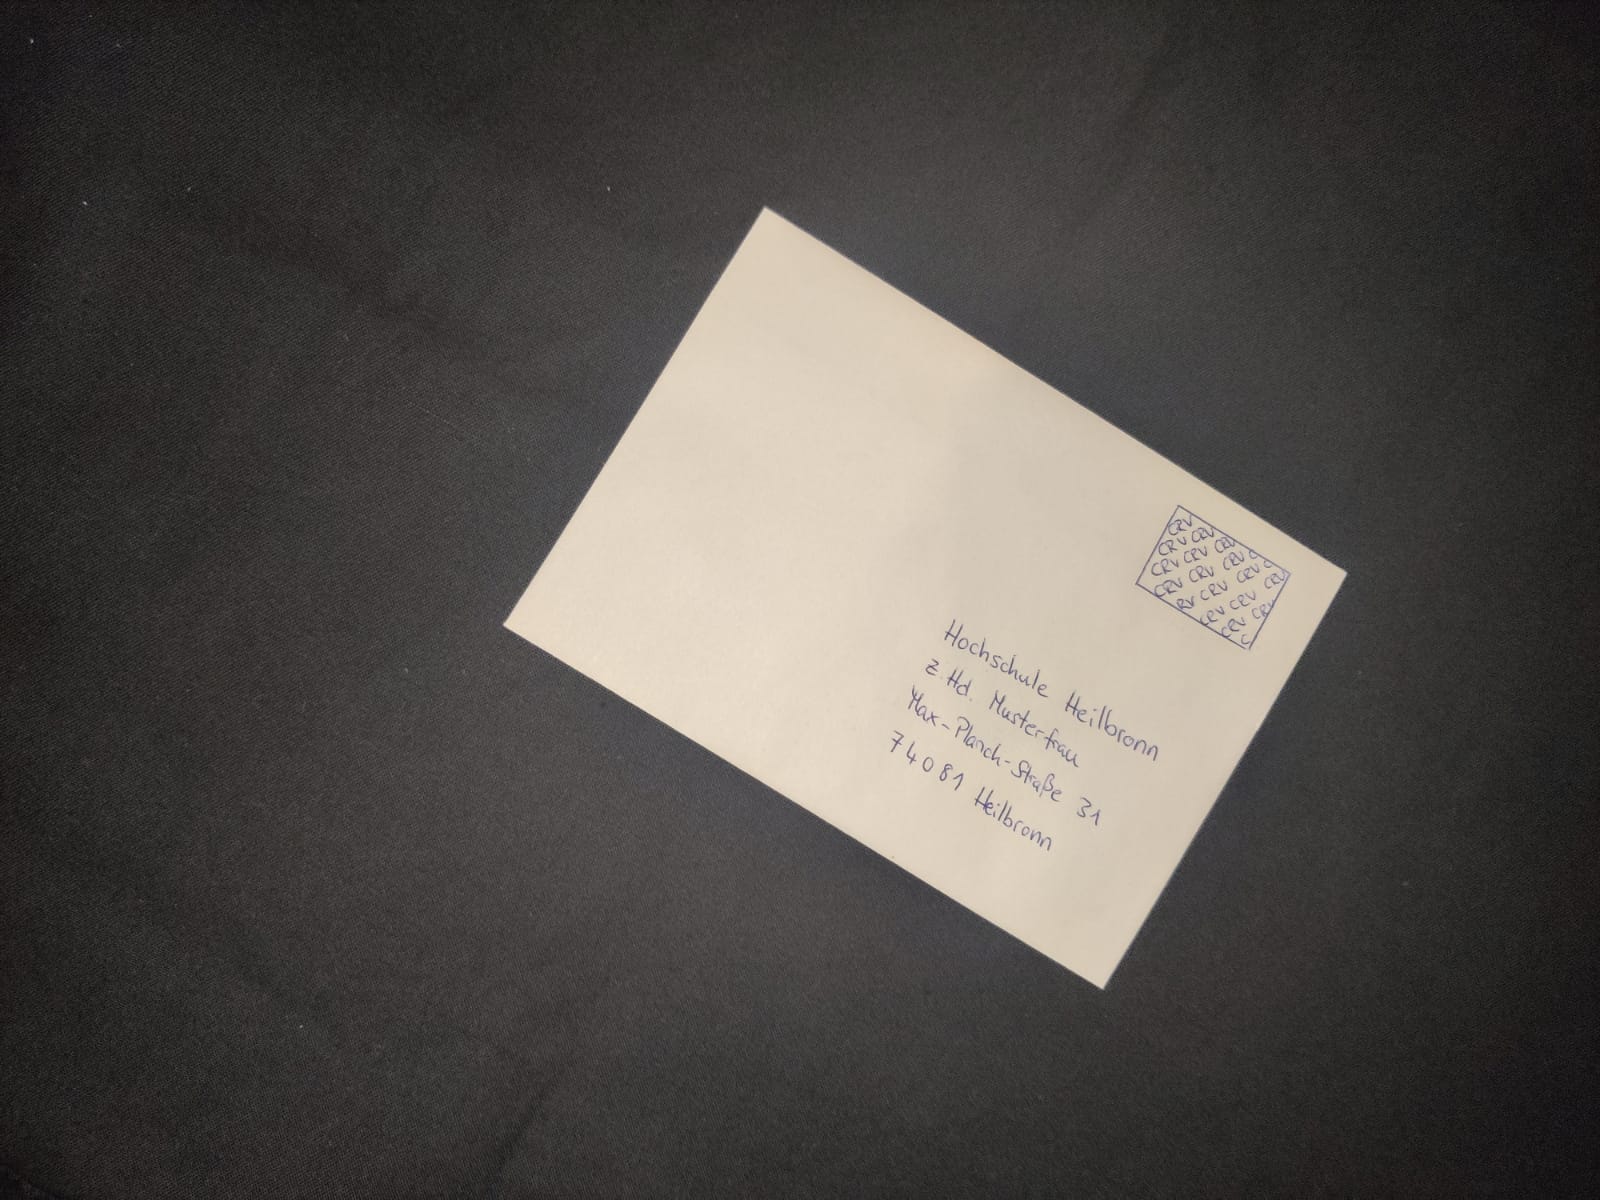 CRV
CRV CRV CRV C
CRV CRV CRV C
CRV CRV CRV CRV
RV CRV CRV CRV
CRV CRV
CRV C
Hochschule Heilbronn
z. Hd. Musterfrau
Max-Planck-Straße 31
74081 Heilbronn